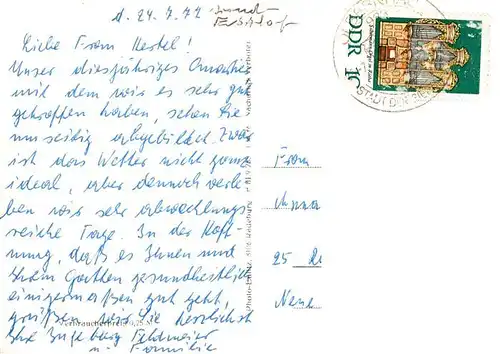 d. 24. 7. 77
Liebe Frau Hertel!
Unser diesjähriges Quartier
mit dem wir es sehr gut
getroffen haben, sehen Sie
umseitig abgebildet. Zwar
ist das Wetter nicht ganz
ideal, aber dennoch verle-
ben wir sehr abwechslungs-
reiche Tage. In der Hoff-
nung, daß es Ihnen und
Ihrem Gatten gesundheitlich
einigermaßen gut geht,
grüßen wir Sie herzlichst
Ihre Ingeburg Feldmeier
u. Familie
Verbraucherpreis 0,25 M
DDR
STADT DER
Frau
Anna
25
Neue